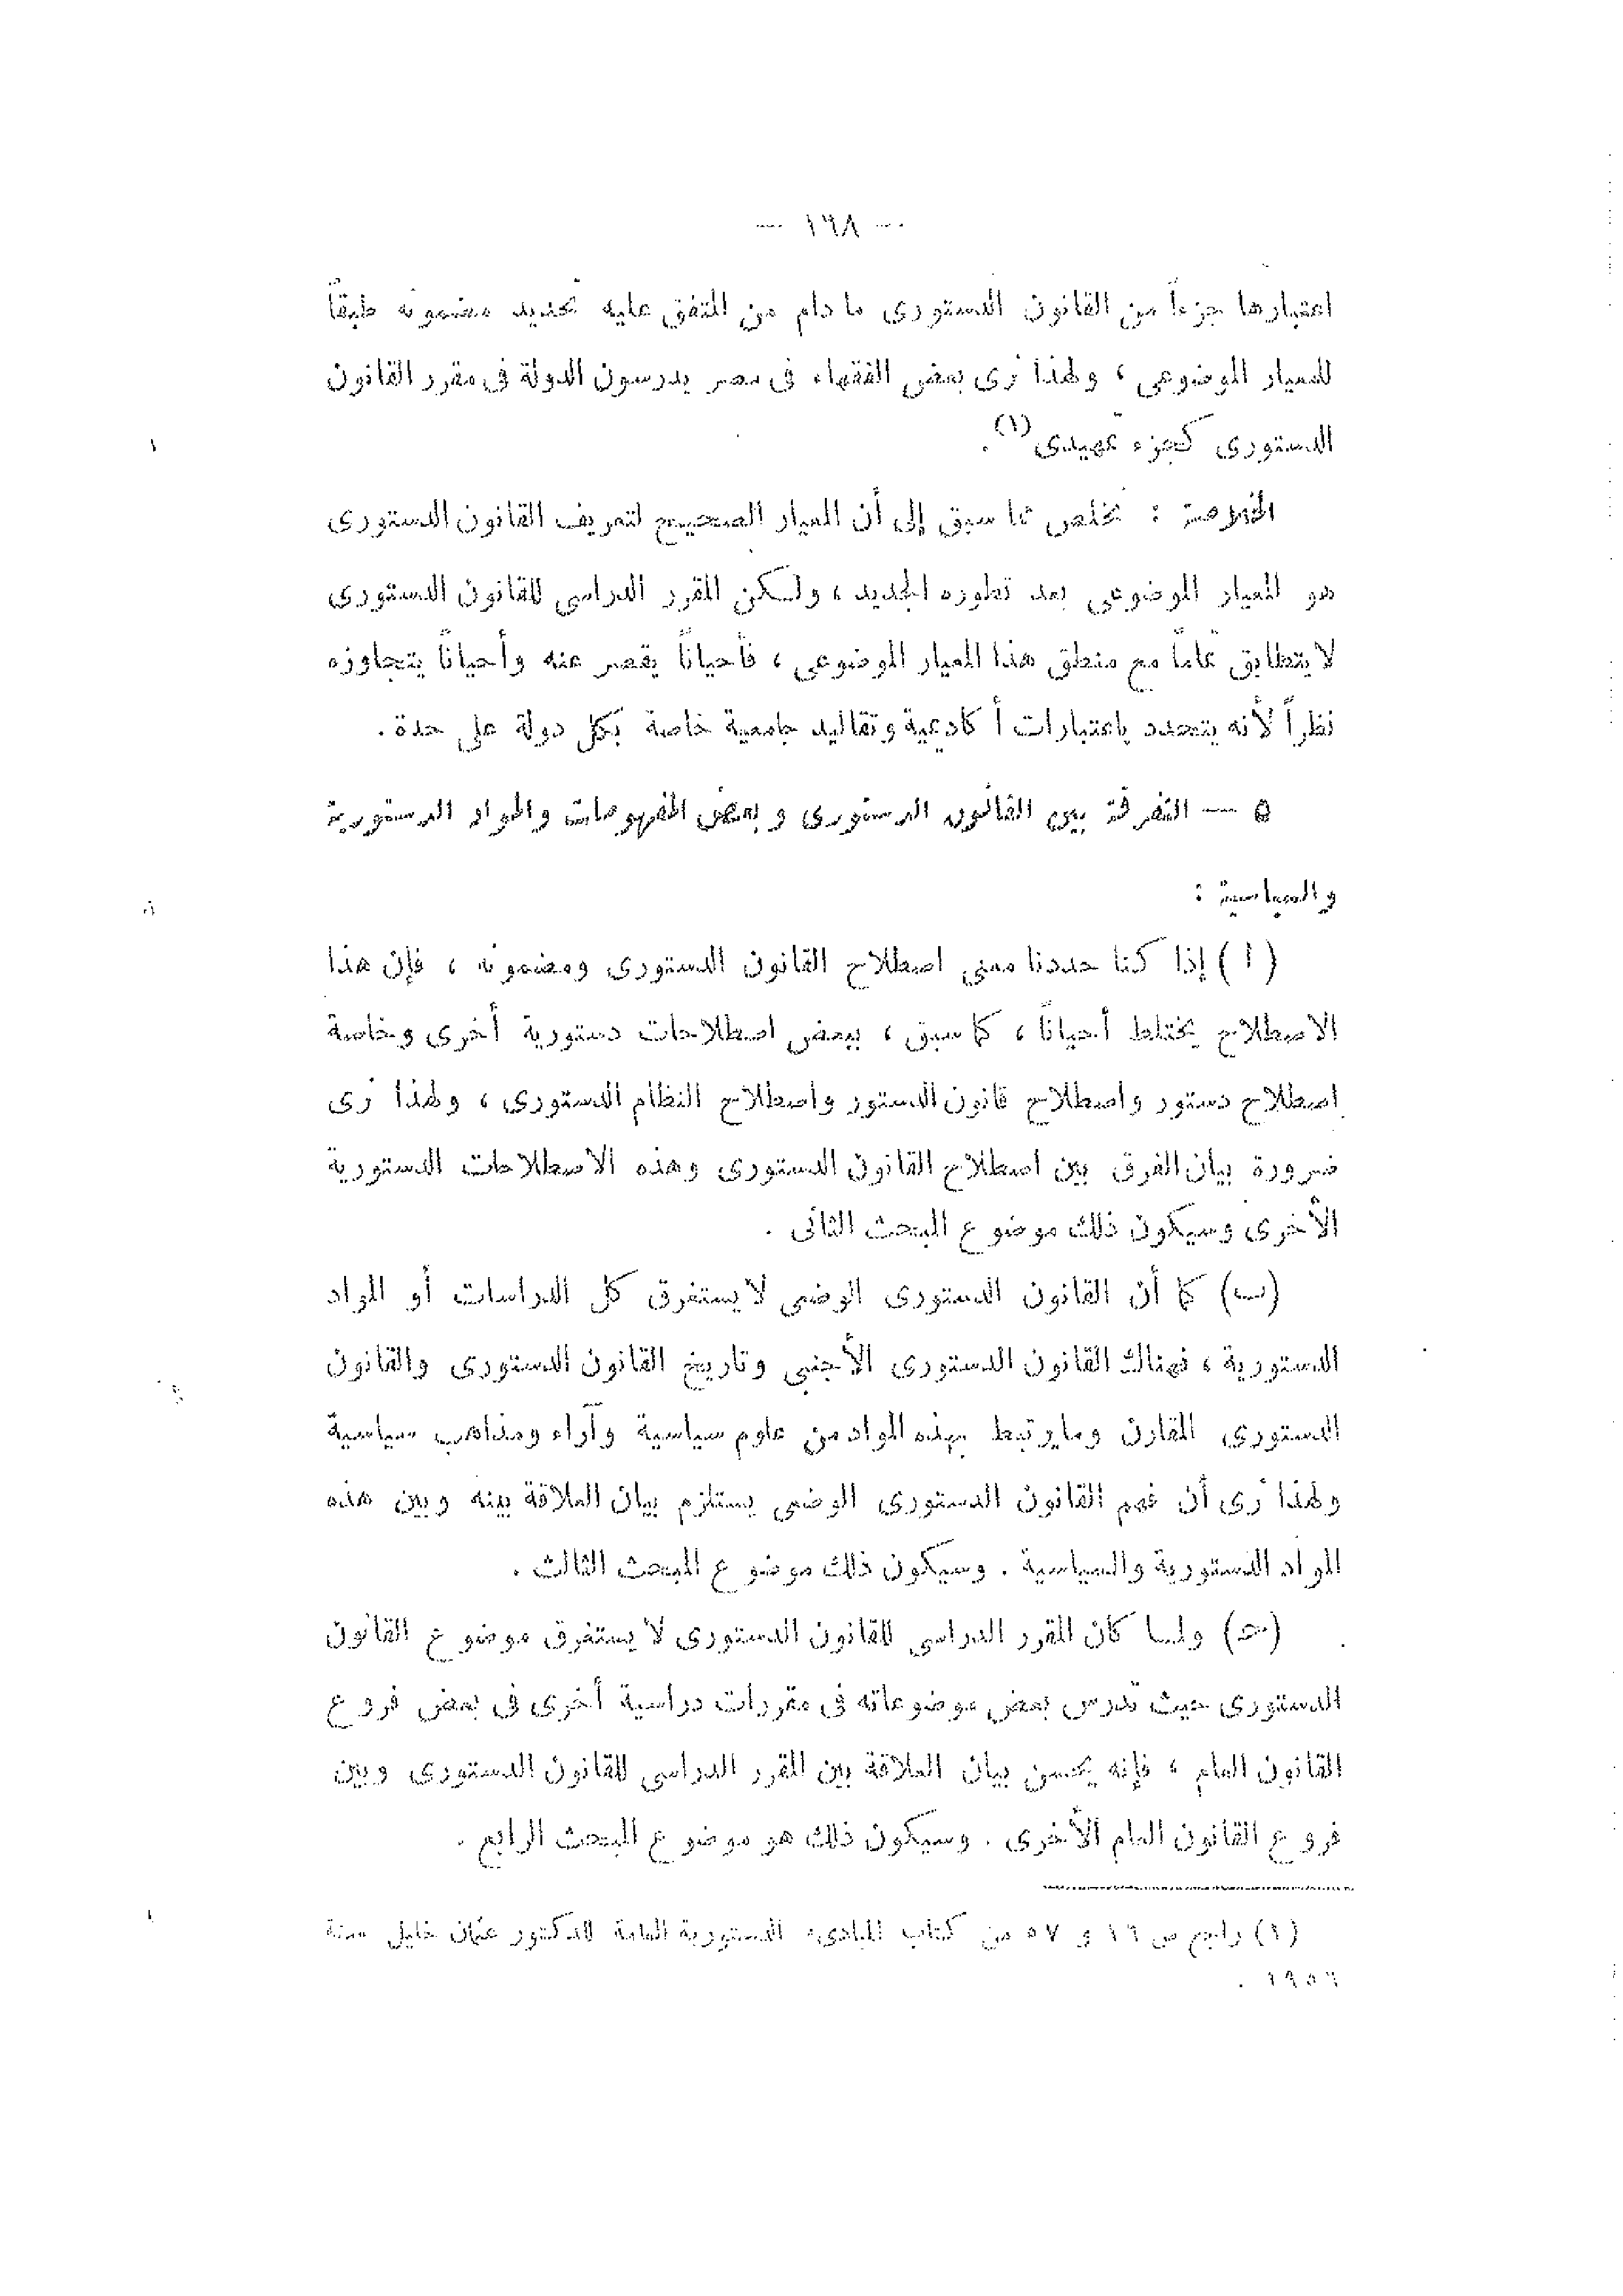 — ١٦٨ —
اعتبارها جزءاً من القانون الدستورى ما دام من المتفق عليه تحديد مضمونه طبقاً
للمعيار الموضوعى ، ولهذا نرى بعض الفقهاء فى مصر يدرسون الدولة فى مقرر القانون
الدستورى كجزء تمهيدى (١) .
الخلاصة : نخلص مما سبق إلى أن المعيار الصحيح لتعريف القانون الدستورى
هو المعيار الموضوعى بعد تطوره الجديد ، ولكن المقرر الدراسى للقانون الدستورى
لا يتطابق تماماً مع منطق هذا المعيار الموضوعى ، فأحياناً يقصر عنه وأحياناً يتجاوزه
نظراً لأنه يتحدد باعتبارات أكاديمية وتقاليد جامعية خاصة بكل دولة على حدة .
٥ — التفرقة بين القانون الدستورى وبعض المفهومات والمواد الدستورية
والسياسية :
(ا) إذا كنا حددنا معنى اصطلاح القانون الدستورى ومضمونه ، فإن هذا
الاصطلاح يختلط أحياناً ، كما سبق ، ببعض اصطلاحات دستورية أخرى وخاصة
اصطلاح دستور واصطلاح قانون الدستور واصطلاح النظام الدستورى ، ولهذا نرى
ضرورة بيان الفرق بين اصطلاح القانون الدستورى وهذه الاصطلاحات الدستورية
الأخرى وسيكون ذلك موضوع المبحث الثانى .
(ب) كما أن القانون الدستورى الوضعى لا يستغرق كل الدراسات أو المواد
الدستورية ، فهناك القانون الدستورى الأجنبى وتاريخ القانون الدستورى والقانون
الدستورى المقارن وما يرتبط بهذه المواد من علوم سياسية وآراء ومذاهب سياسية
ولهذا نرى أن فهم القانون الدستورى الوضعى يستلزم بيان العلاقة بينه وبين هذه
المواد الدستورية والسياسية . وسيكون ذلك موضوع المبحث الثالث .
(ج) ولما كان المقرر الدراسى للقانون الدستورى لا يستغرق موضوع القانون
الدستورى حيث تدرس بعض موضوعاته فى مقررات دراسية أخرى فى بعض فروع
القانون العام ، فإنه يحسن بيان العلاقة بين المقرر الدراسى للقانون الدستورى وبين
فروع القانون العام الأخرى . وسيكون ذلك هو موضوع المبحث الرابع .
(١) راجع ص ١٦ و ٥٧ من كتاب المبادىء الدستورية العامة للدكتور عثمان خليل سنة
١٩٥٦ .